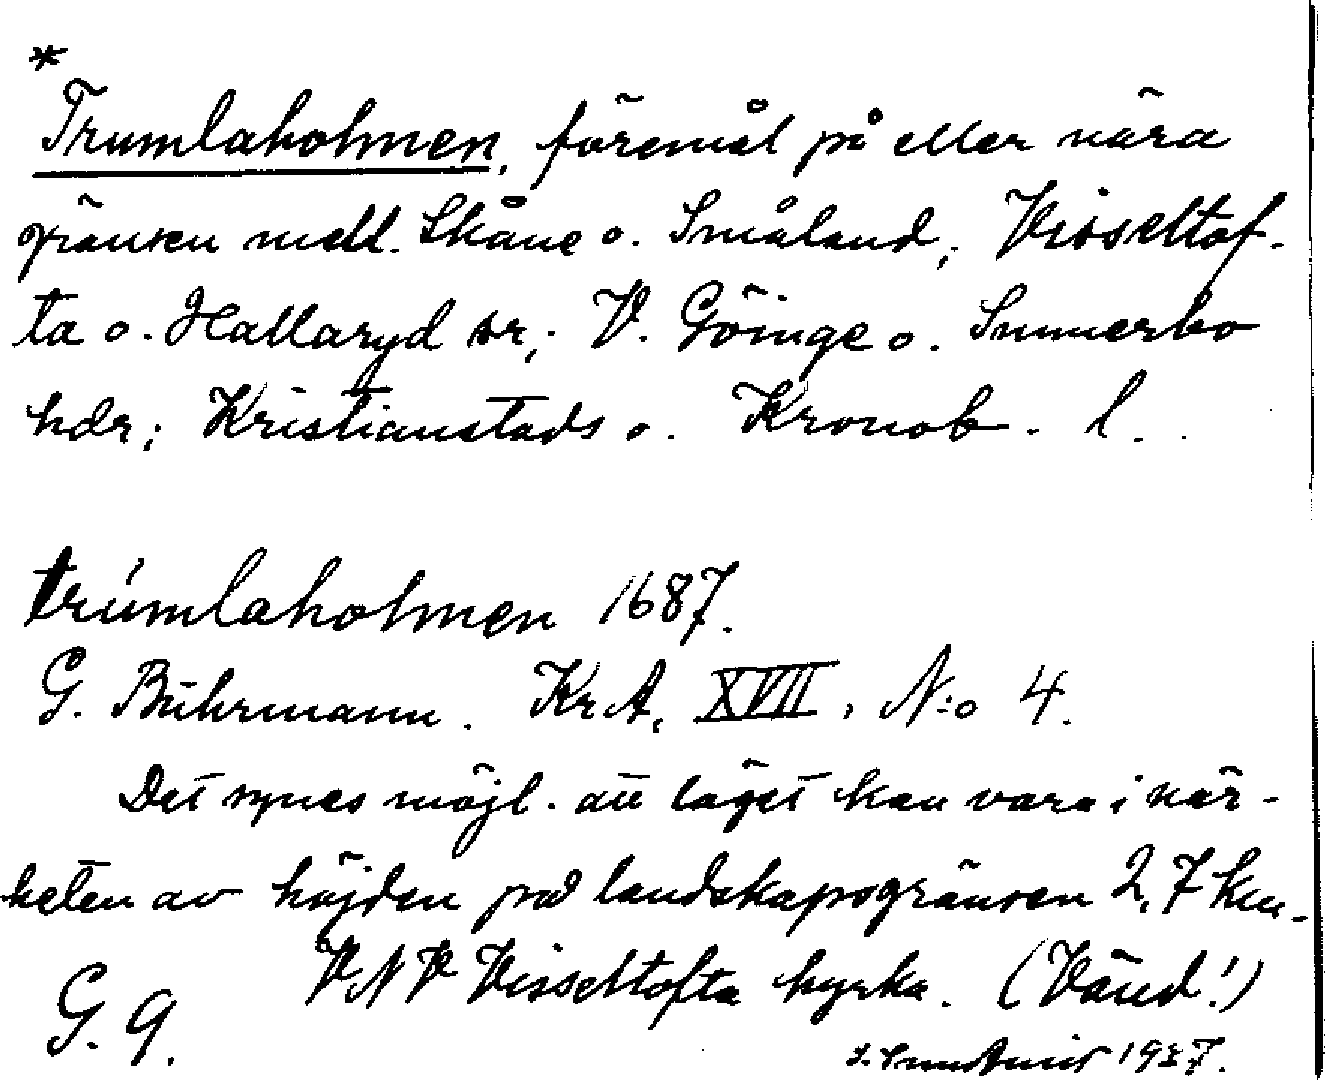 *
Trumlaholmen, föremål på eller nära
gränsen mell. Skåne o. Småland; Visseltof-
ta o. Hallaryd snr; V. Göinge o. Sunnerbo
hdr; Kristianstads o. Kronob. l.
trúmlaholmen 1687.
G. Buhrmann. KrA, XVII, N:o 4.
Det synes möjl. att läget kan vara i när-
heten av höjden på landskapsgränsen 2,7 km
VNV Visseltofta kyrka. (Vänd!)
G. 9.
1937.